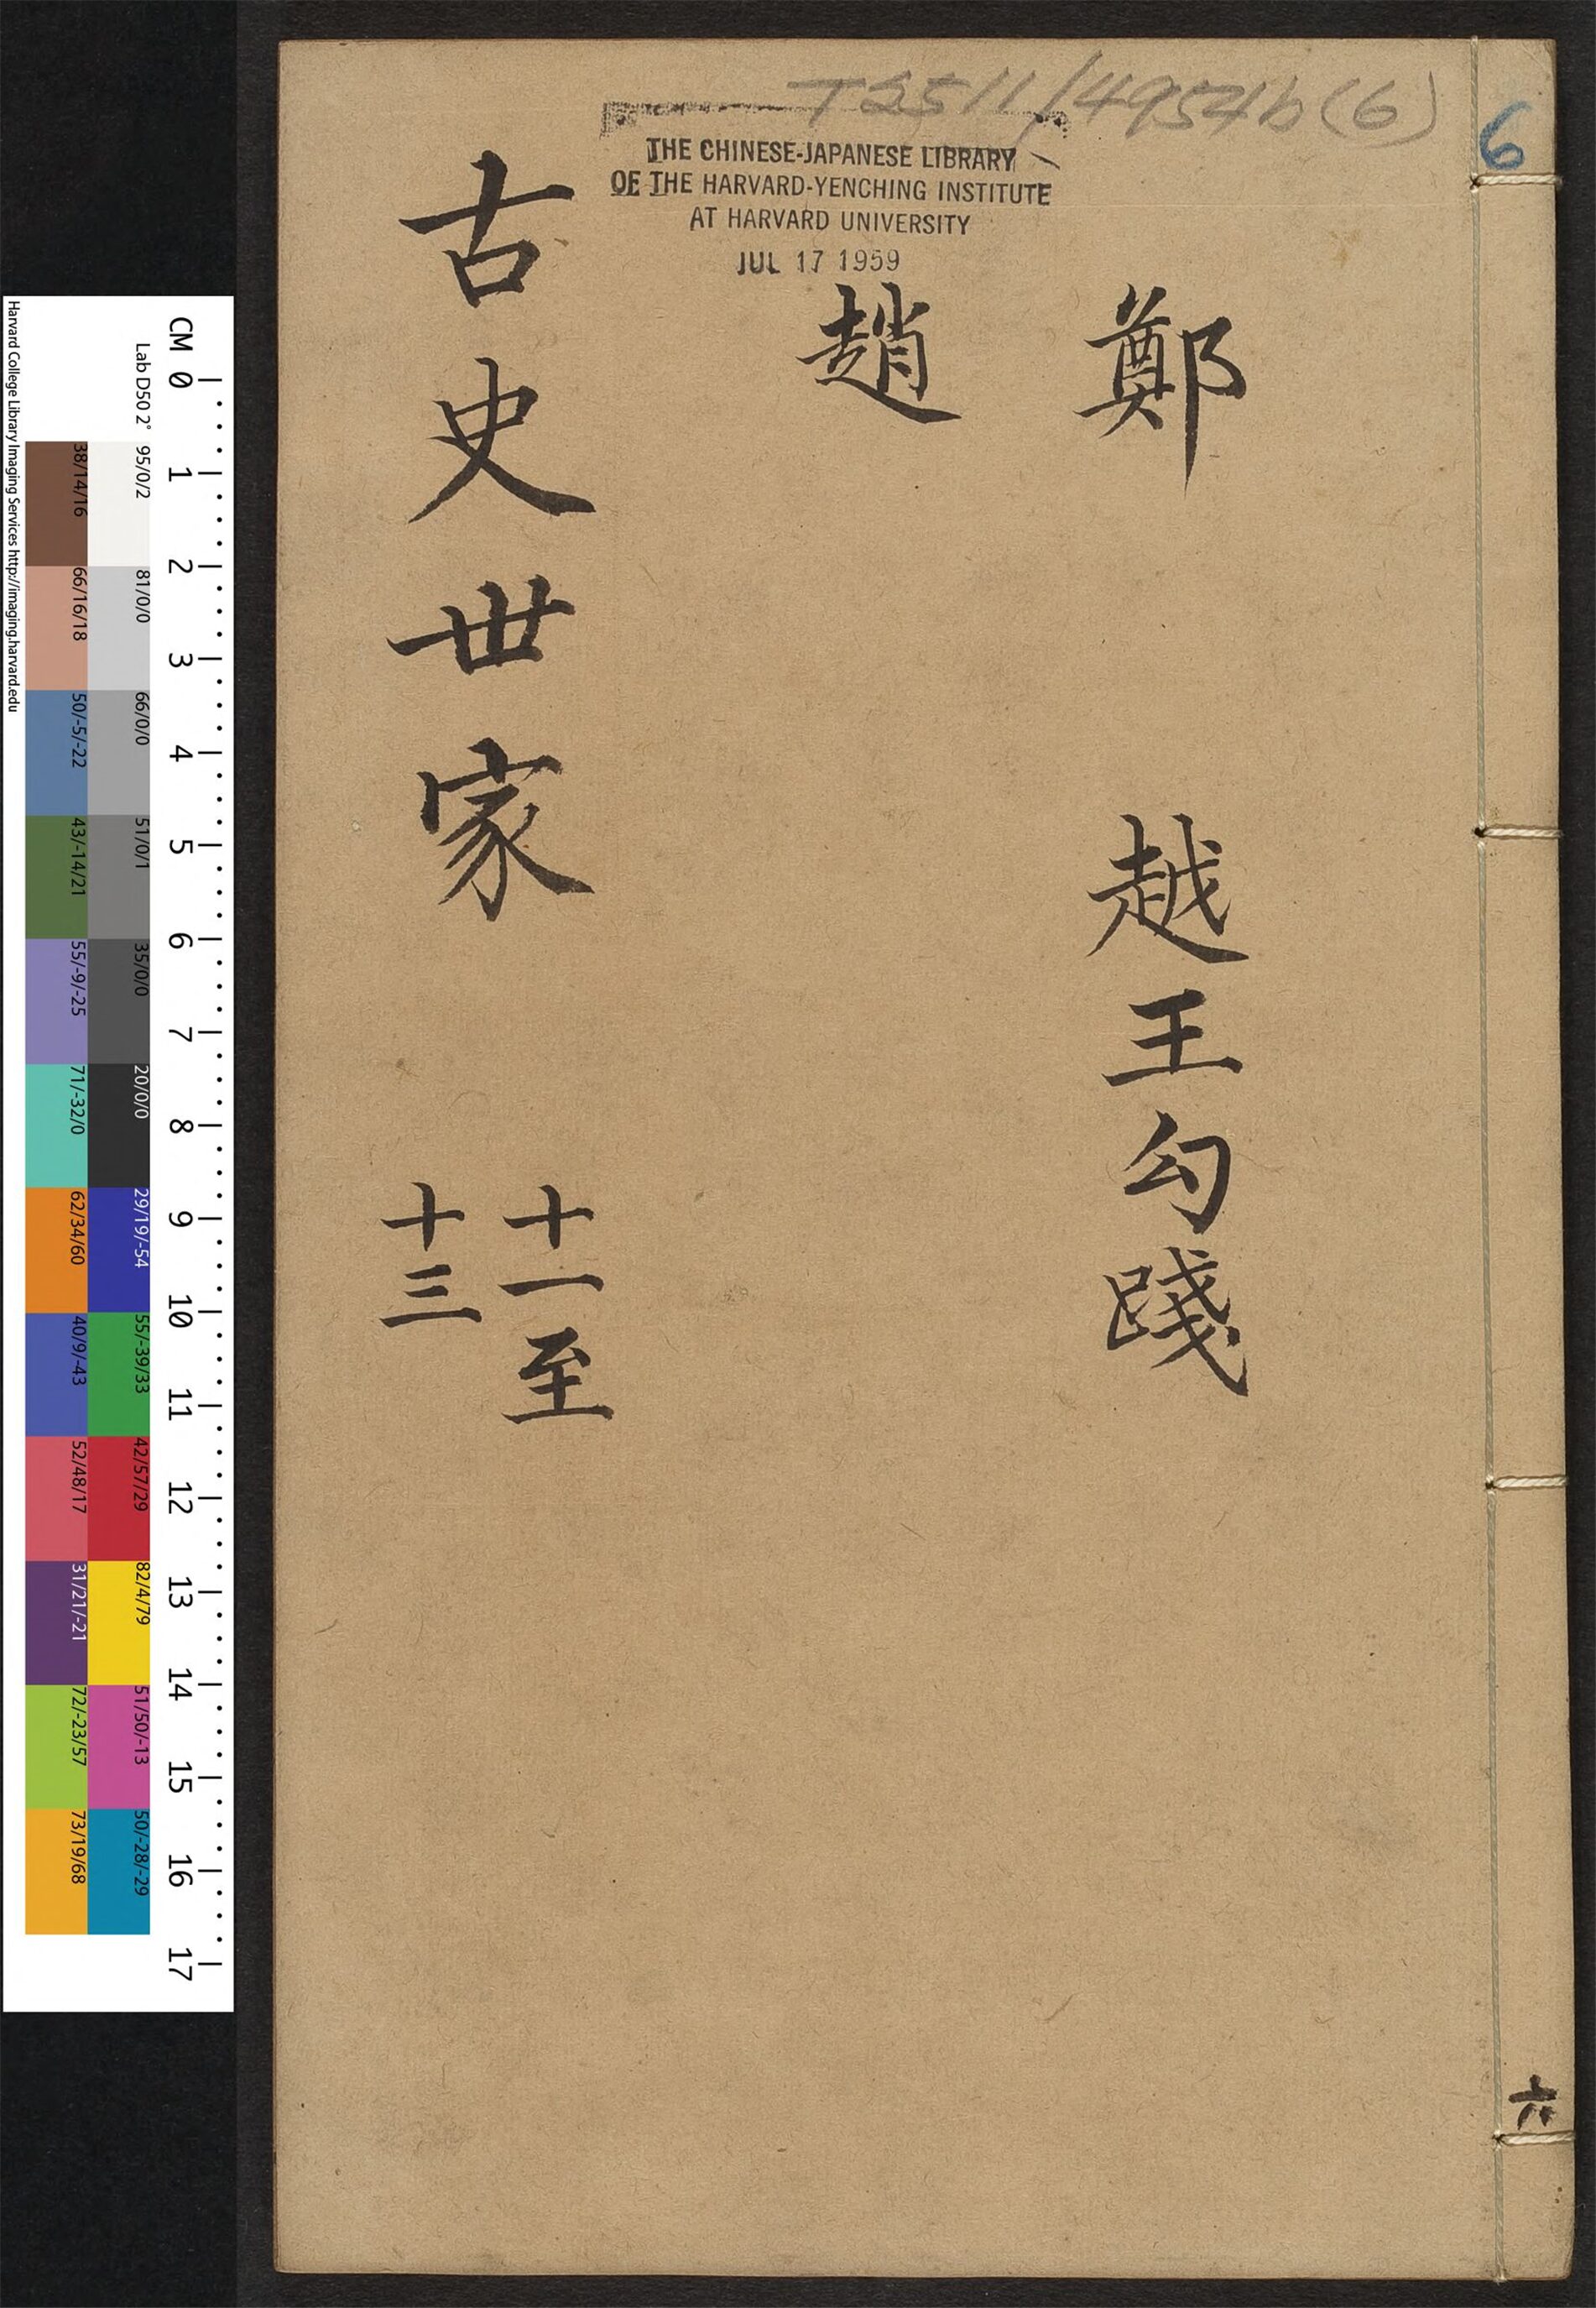 T2511/4954b(6)
6
THE CHINESE-JAPANESE LIBRARY
OF THE HARVARD-YENCHING INSTITUTE
AT HARVARD UNIVERSITY
JUL 17 1959
鄭
越王勾踐
趙
古史世家
十一至
十三
六
CM 0 1 2 3 4 5 6 7 8 9 10 11 12 13 14 15 16 17
Lab D50 2° 95/0/2 81/0/0 66/0/0 51/0/1 35/0/0 20/0/0 29/19/-54 55/-39/33 42/57/29 82/4/79 51/50/-13 50/-28/-29
38/14/16 66/16/18 50/-5/-22 43/-14/21 55/-9/-25 71/-32/0 62/34/60 40/9/-43 52/48/17 31/21/-21 72/-23/57 73/19/68
Harvard College Library Imaging Services http://imaging.harvard.edu